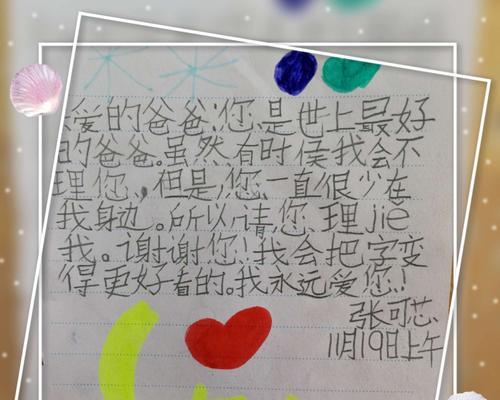 爱的爸爸:您是世上最好
的爸爸。虽然有时侯我会不
理您、但是,您一直很少在
我身边。所以请您理jiě
我。谢谢您!我会把字变
得更好看的。我永远爱您!
张可芯
11月19日上午